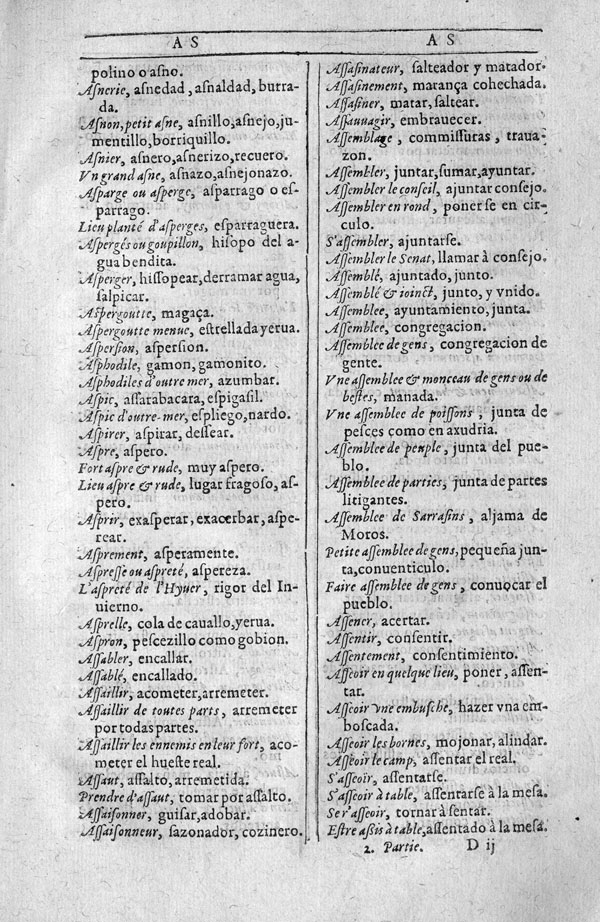 A S
polino o aſno.
Aſnerie, aſnedad, aſnaldad, burra-
da.
Aſnon, petit aſne, aſnillo, aſnejo, ju-
mentillo, borriquillo.
Aſnier, aſnero, aſnerizo, recuero.
Vn grand aſne, aſnazo, aſnejonazo.
Aſparge ou aſperge, aſparrago o eſ-
parrago.
Lieu planté d'aſperges, eſparraguera.
Aſpergés ou goupillon, hiſopo del a-
gua bendita.
Aſperger, hiſſopear, derramar agua,
ſalpicar.
Aſpergoutte, magaça.
Aſpergoutte menue, eſtrellada yerua.
Aſperſion, aſperſion.
Aſphodile, gamon, gamonito.
Aſphodiles d'outre mer, azumbar.
Aſpic, aſſarabacara, eſpigaſil.
Aſpic d'outre-mer, eſpliego, nardo.
Aſpirer, aſpirar, deſſear.
Aſpre, aſpero.
Fort aſpre & rude, muy aſpero.
Lieu aſpre & rude, lugar fragoſo, aſ-
pero.
Aſprir, exaſperar, exacerbar, aſpe-
rear.
Aſprement, aſperamente.
Aſpreſſe ou aſpreté, aſpereza.
L'aſpreté de l'Hyuer, rigor del In-
uierno.
Aſprelle, cola de cauallo, yerua.
Aſpron, peſcezillo como gobion.
Aſſabler, encallar.
Aſſablé, encallado.
Aſſaillir, acometer, arremeter.
Aſſaillir de toutes parts, arremeter
por todas partes.
Aſſaillir les ennemis en leur fort, aco-
meter el hueſte real.
Aſſaut, aſſalto, arremetida.
Prendre d'aſſaut, tomar por aſſalto.
Aſſaiſonner, guiſar, adobar.
Aſſaiſonneur, ſazonador, cozinero.
A S
Aſſaſinateur, ſalteador y matador.
Aſſaſinement, marança cohechada.
Aſſaſiner, matar, ſaltear.
Aſſauuagir, embrauecer.
Aſſemblage, commiſſuras, traua-
zon.
Aſſembler, juntar, ſumar, ayuntar.
Aſſembler le conſeil, ajuntar conſejo.
Aſſembler en rond, ponerſe en cir-
culo.
S'aſſembler, ajuntarſe.
Aſſembler le Senat, llamar à conſejo.
Aſſemblé, ajuntado, junto.
Aſſemblé & ioinct, junto, y vnido.
Aſſemblee, ayuntamiento, junta.
Aſſemblee, congregacion.
Aſſemblee de gens, congregacion de
gente.
Vne aſſemblee & monceau de gens ou de
beſtes, manada.
Vne aſſemblee de poiſſons, junta de
peſces como en axudria.
Aſſemblee de peuple, junta del pue-
blo.
Aſſemblee de parties, junta de partes
litigantes.
Aſſemblee de Sarraſins, aljama de
Moros.
Petite aſſemblee de gens, pequeña jun-
ta, conuenticulo.
Faire aſſemblee de gens, conuocar el
pueblo.
Aſſener, acertar.
Aſſentir, conſentir.
Aſſentement, conſentimiento.
Aſſeoir en quelque lieu, poner, aſſen-
tar.
Aſſeoir vne embuſche, hazer vna em-
boſcada.
Aſſeoir les bornes, mojonar, alindar.
Aſſeoir le camp, aſſentar el real.
S'aſſeoir, aſſentarſe.
S'aſſeoir à table, aſſentarſe à la meſa.
Se r'aſſeoir, tornar à ſentar.
Eſtre aſsis à table, aſſentado à la meſa.
2. Partie. D ij